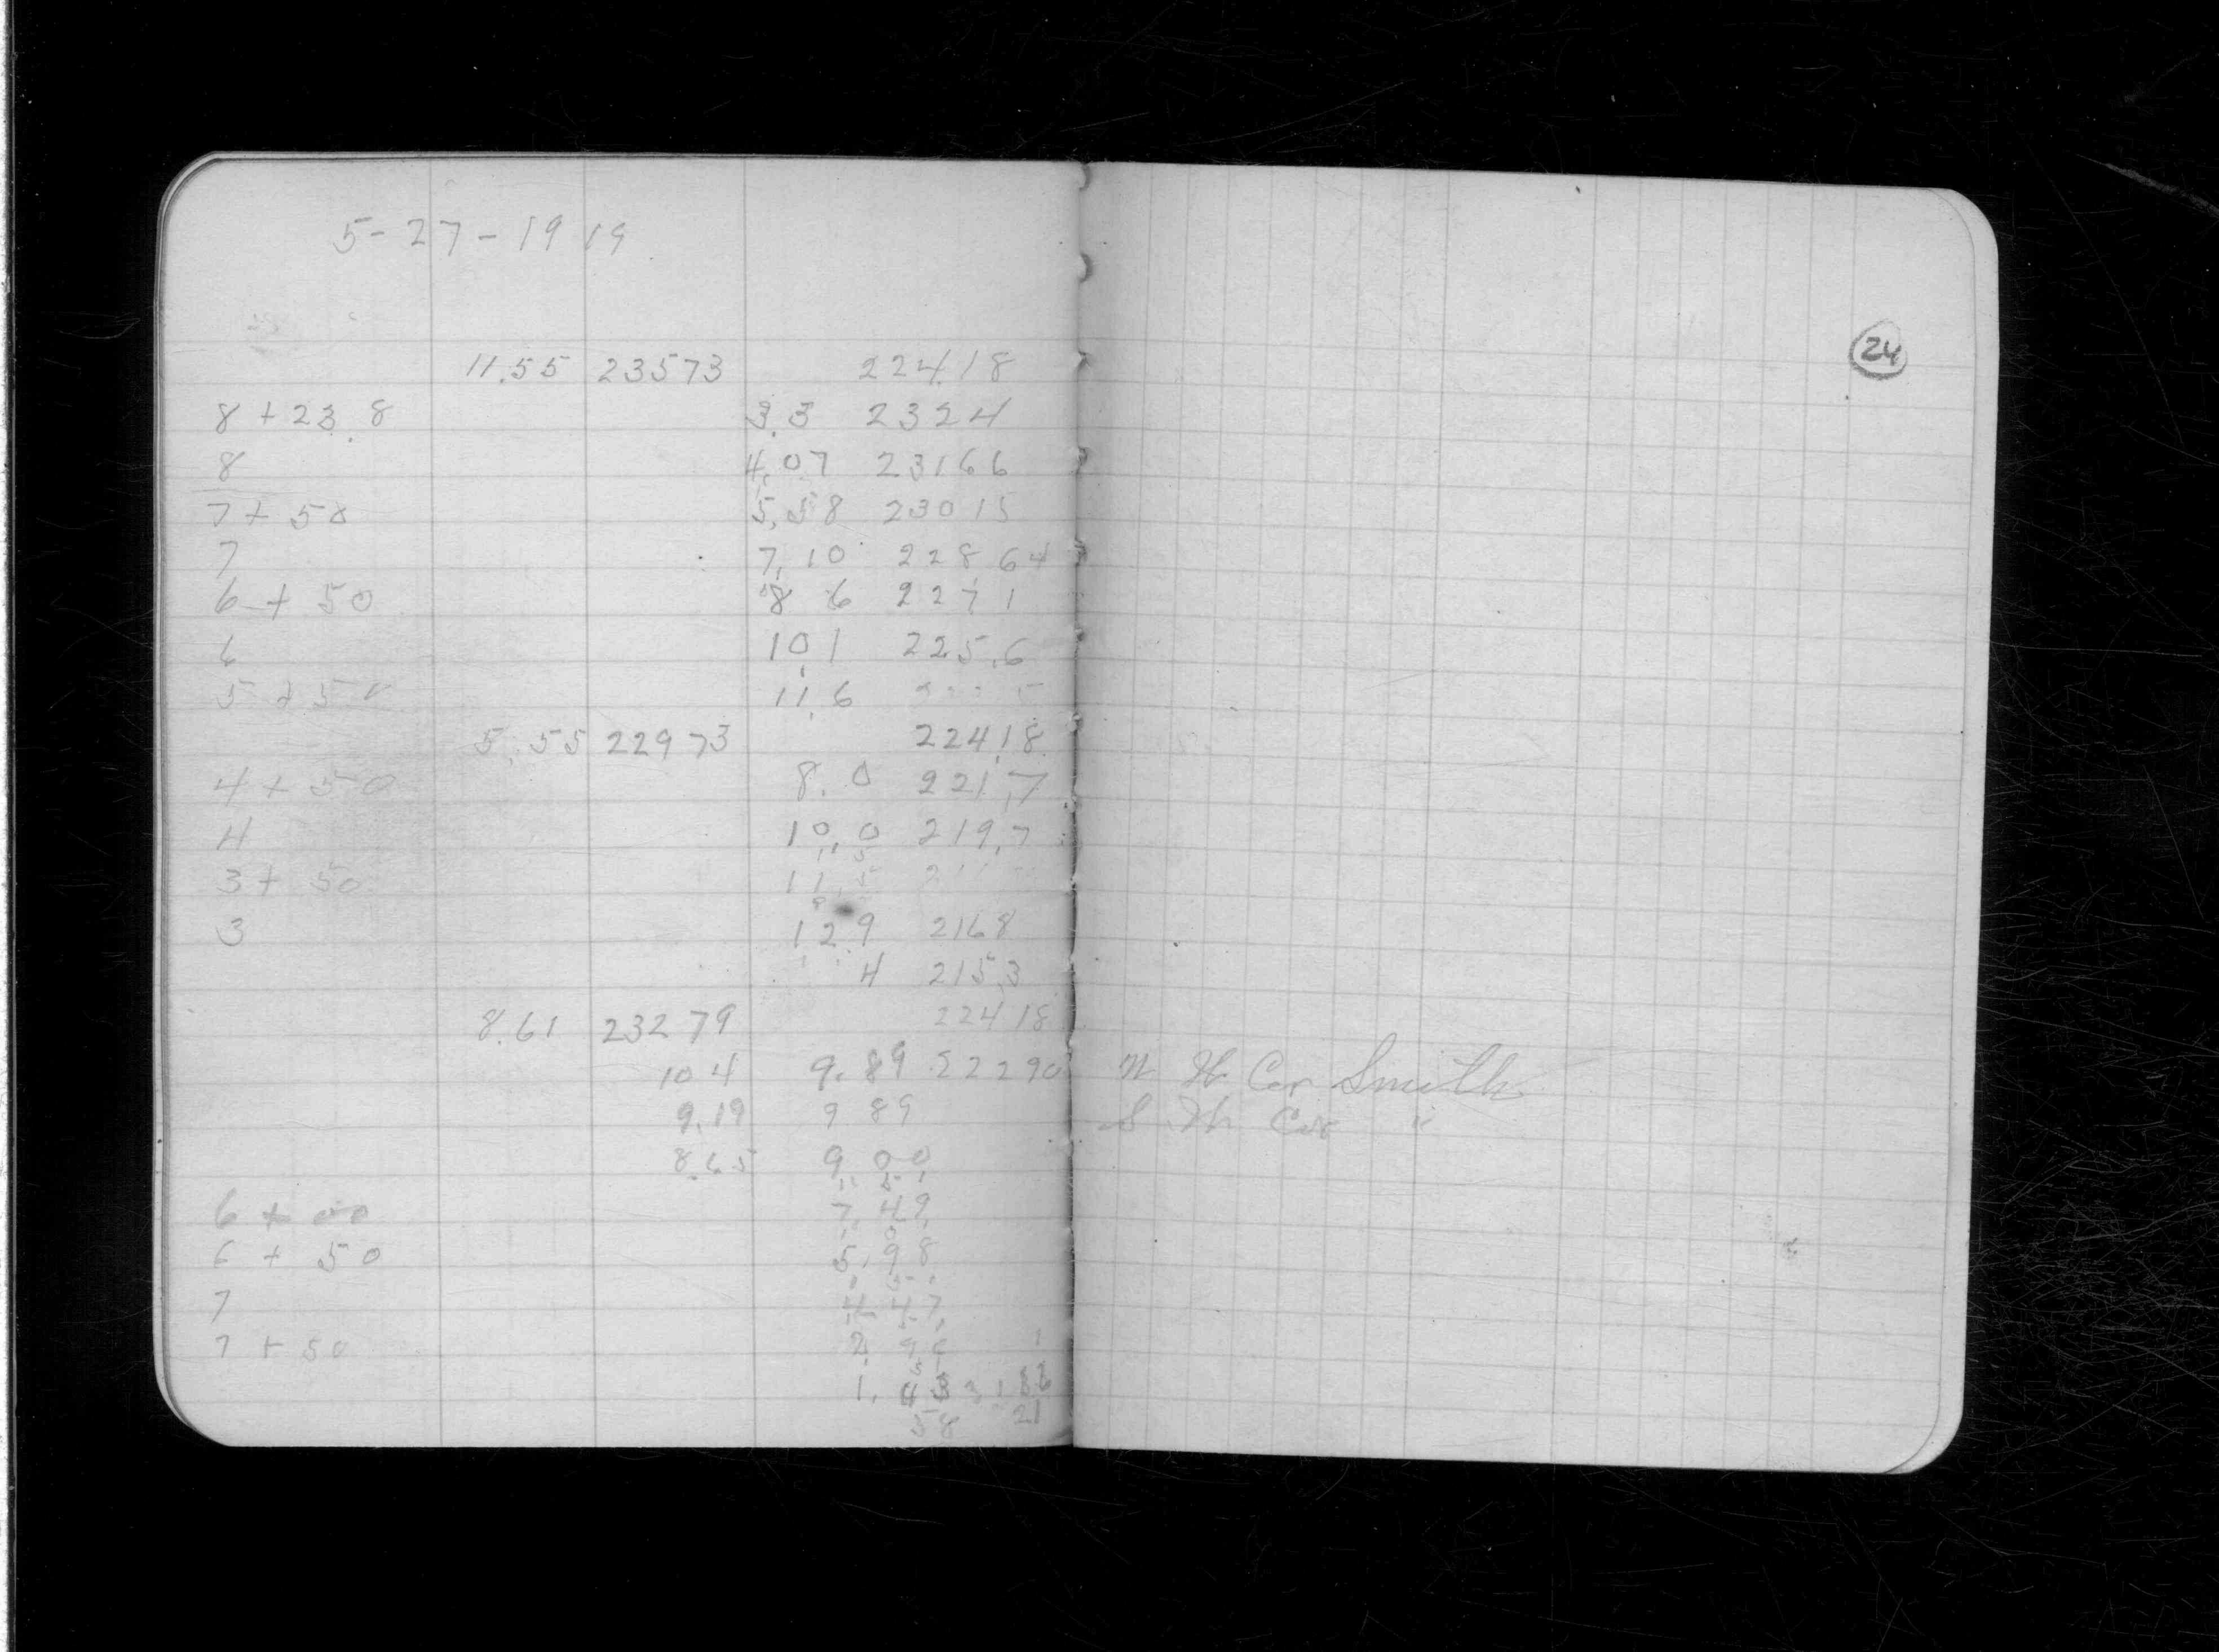 5-27-1919
24
11.55 23573 224.18
8+23.8 3.3 2324
8 4.07 23166
7+50 5.58 23015
7 7.10 22864
6+50 8 6 2271
6 10.1 225.6
5+50 11.6
5.55 22973 224.18
4+50 8.0 221.7
4 10.0 219.7
3+50 11.5
3 12.9 2168
4 215.3
8.61 23279 22418
10 4 9.89 22290 N W Cor Smith
9.19 9 89 S W Cor "
8.65 9.00
6+00 7.49
6+50 5.98
7 4.47
7+50